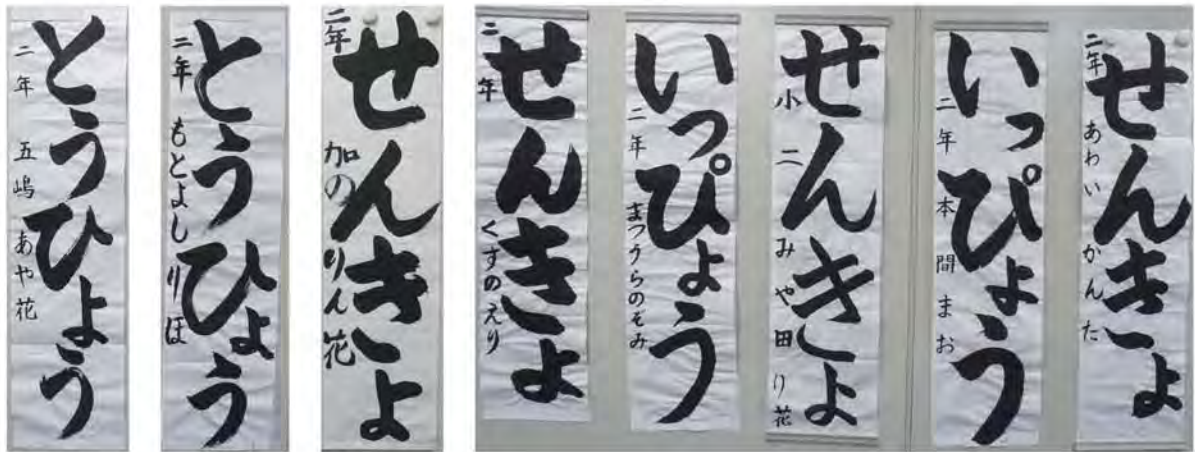 とうひょう
二年 五嶋 あや花
とうひょう
二年 もとよし りほ
せんきょ
二年 加の りん花
せんきょ
二年 くすのえり
いっぴょう
二年 まつうらのぞみ
せんきょ
小二 みや田 り花
いっぴょう
二年 本間 まお
せんきょ
二年 あわい かんた